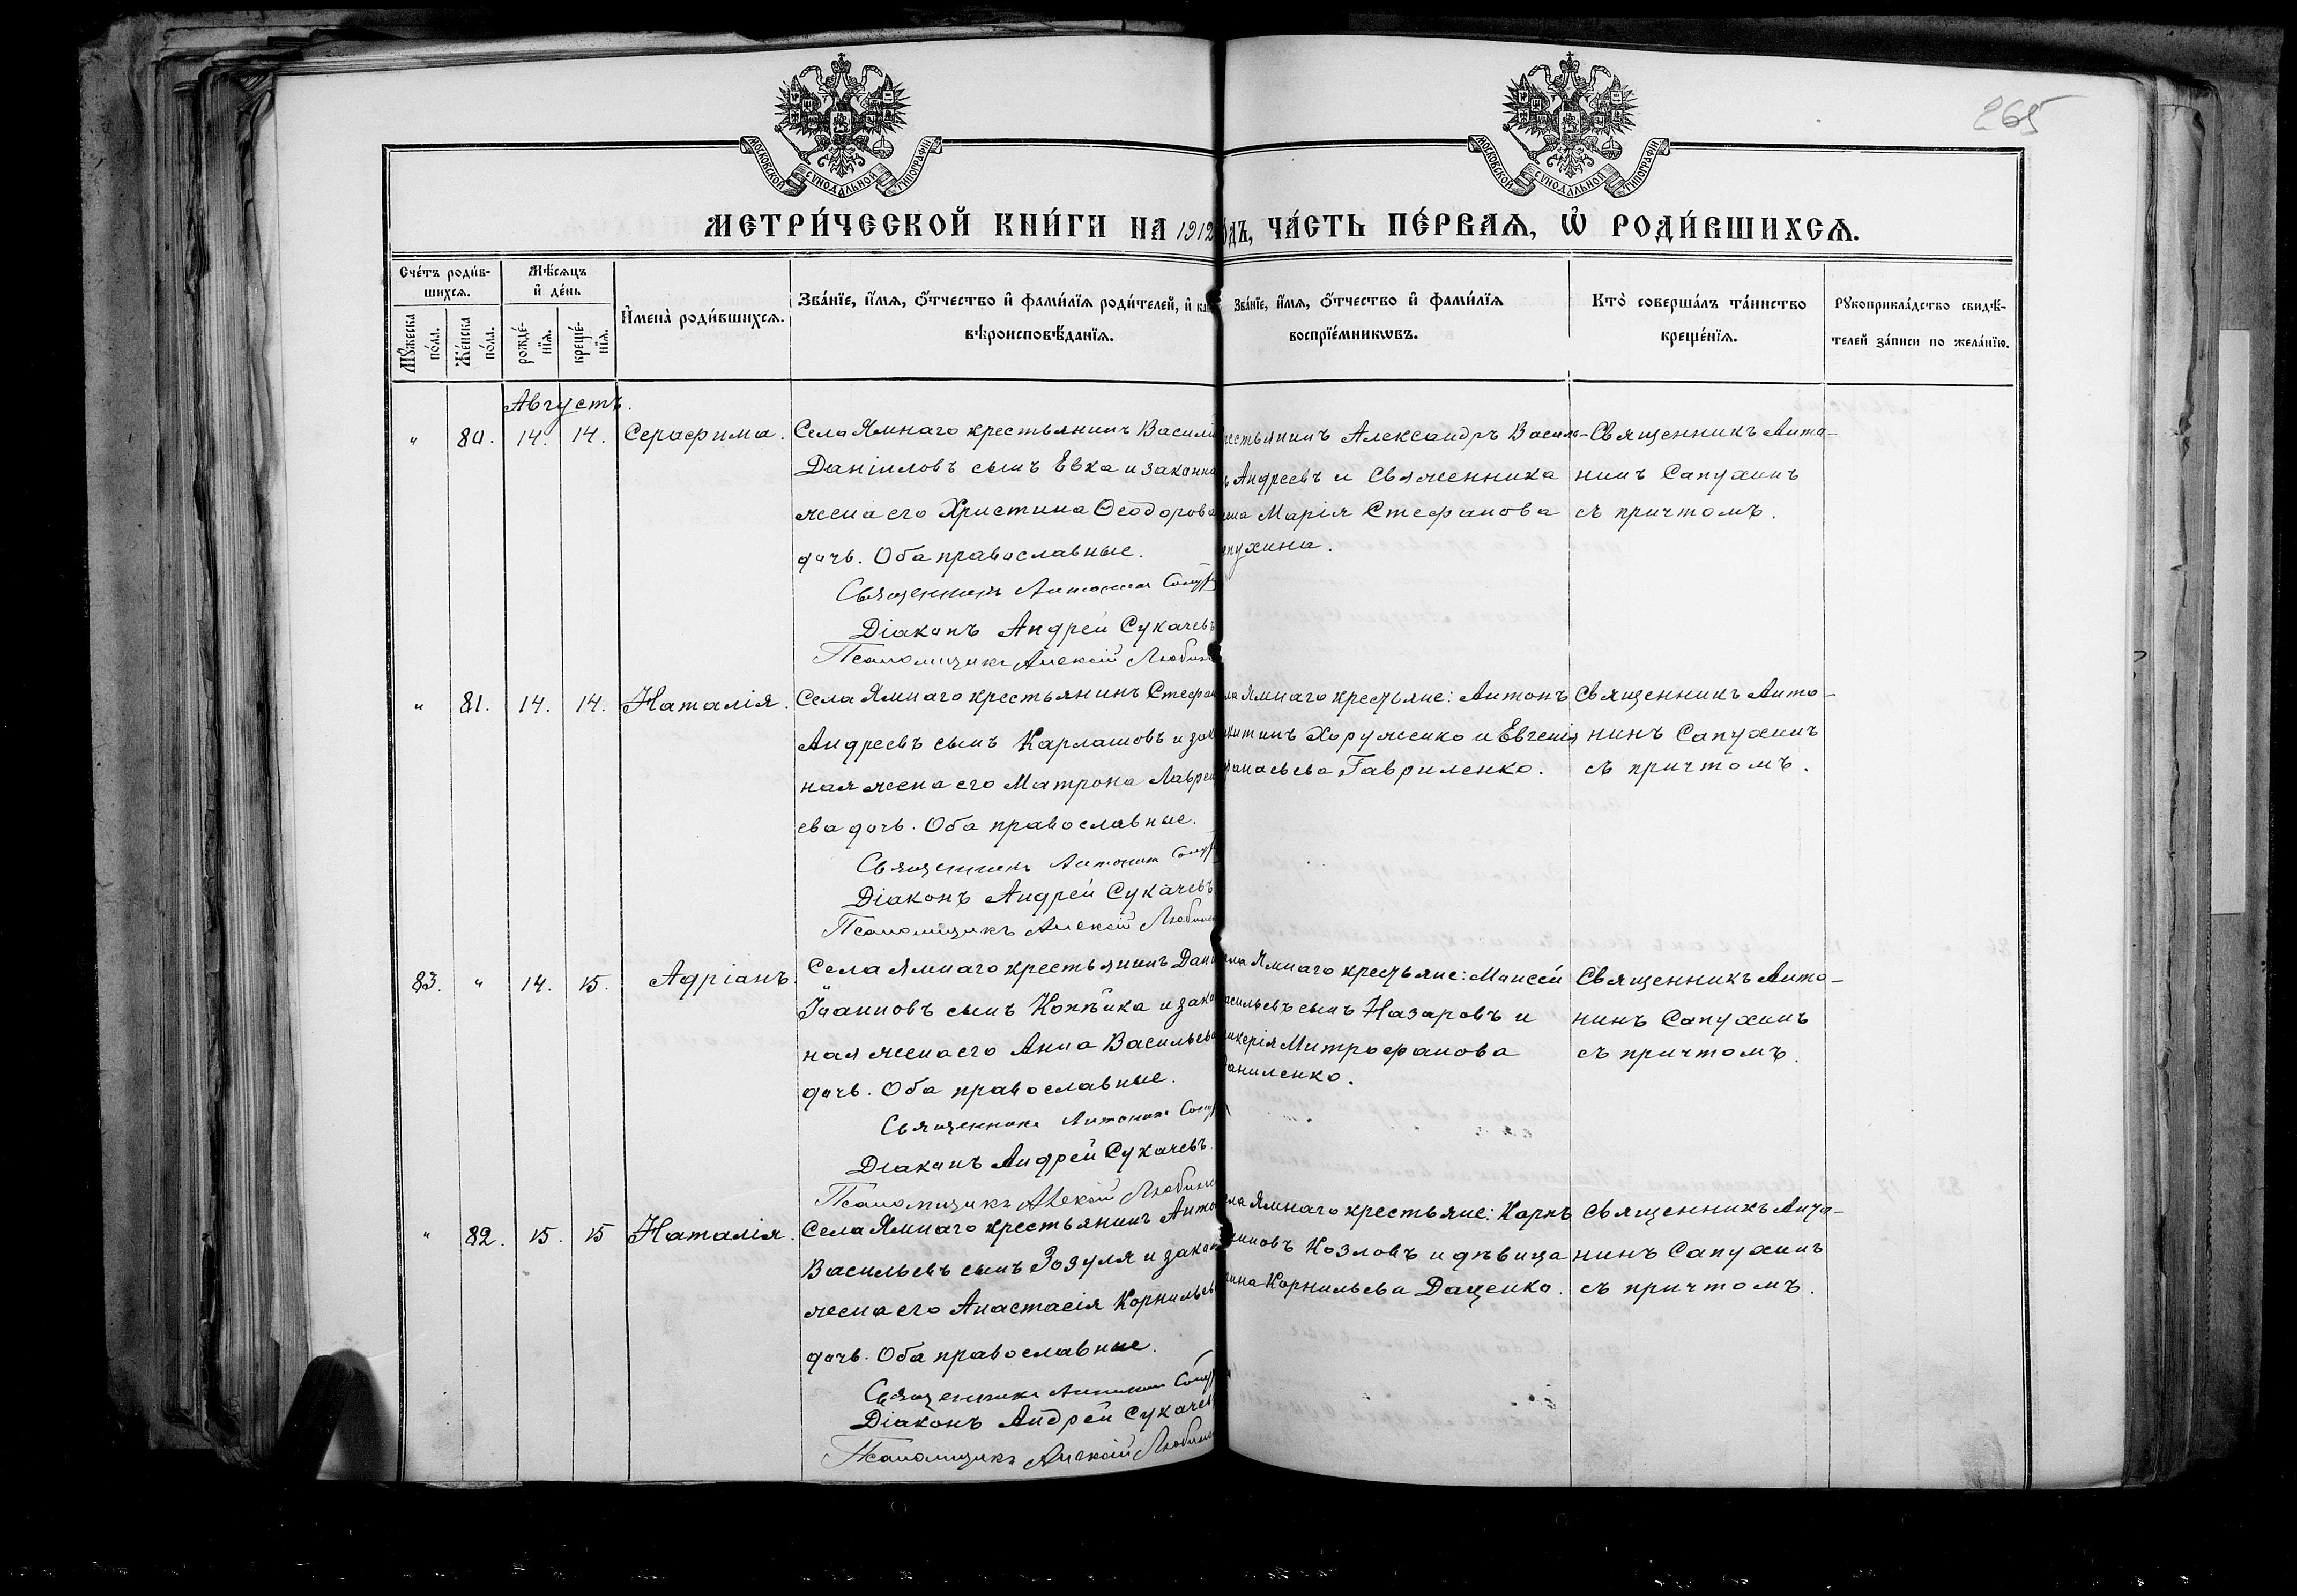 265
МОСКОВСКОЙ СѴНОДАЛЬНОЙ ТИПОГРАФІИ
МОСКОВСКОЙ СѴНОДАЛЬНОЙ ТИПОГРАФІИ
МЕТРИ́ЧЕСКОЙ КНИ́ГИ НА 1912 ЧА́СТЬ ПЕ́РВАѦ, Ѡ҆ РОДИ́ВШИХСѦ.
Сче́тъ роди́в-
шихсѧ.
Мꙋ́жеска
по́ла.
Же́нска
по́ла.
Мѣ́сѧцъ
и҆ де́нь
рожде́-
нїѧ.
креще́-
нїѧ.
И҆мена̀ роди́вшихсѧ.
Зва́нїе, и҆́мѧ, ѻ҆́тчество и҆ фами́лїѧ роди́телей, и҆
вѣроисповѣ́данїѧ.
Зва́нїе, и҆́мѧ, ѻ҆́тчество и҆ фами́лїѧ
воспрїе́мникѡвъ.
Кто̀ соверша́лъ та́инство
креще́нїѧ.
Рꙋкоприкла́дство свидѣ́-
телей за́писи по жела́нїю.
Августъ.
" 80. 14. 14. Серафима.
Села Ямнаго крестьянинъ Васили
Даніиловъ сынъ Евка и законна
жена его Христина Ѳеодорова
дочь. Оба православные.
Священникъ Антонин Сапух
Діаконъ Андрей Сукачевъ
Псаломщикъ Алексій Любин
рестьянинъ Александръ Василь-
ъ Андреевъ и Священника
ена Марія Стефанова
апухина.
Священникъ Анто-
нинъ Сапухинъ
съ причтомъ.
" 81. 14. 14. Наталія.
Села Ямнаго крестьянинъ Стефан
Андреевъ сынъ Карлашовъ и зак
ная жена его Матрона Лаврен
ева дочь. Оба православные.
Священникъ Антонин Сапух
Діаконъ Андрей Сукачевъ
Псаломщикъ Алексій Любин
ла Ямнаго крестьяне: Антонъ
икитинъ Хоруженко и Евгенія
фанасьева Гавриленко.
Священникъ Анто-
нинъ Сапухинъ
съ причтомъ.
83. " 14. 15. Адріанъ.
Села Ямнаго крестьянинъ Дани
Іоанновъ сынъ Копѣйка и зако
ная жена его Анна Васильева
дочь. Оба православные.
Священникъ Антонин Сапух
Діаконъ Андрей Сукачевъ.
Псаломщикъ Алексій Любин
ла Ямнаго крестьяне: Моисей
асильевъ сынъ Назаровъ и
икерія Митрофанова
аниленко.
Священникъ Анто-
нинъ Сапухинъ
съ причтомъ.
" 82. 15. 15 Наталія.
Села Ямнаго крестьянинъ Анто
Васильевъ сынъ Зозуля и закон
жена его Анастасія Корнильев
дочь. Оба православные.
Священникъ Антонин Сапух
Діаконъ Андрей Сукачев
Псаломщикъ Алексій Любин
ла Ямнаго крестьяне: Карпъ
нновъ Козловъ и дѣвица
ина Корнильева Даценко.
Священникъ Анто-
нинъ Сапухинъ
съ причтомъ.